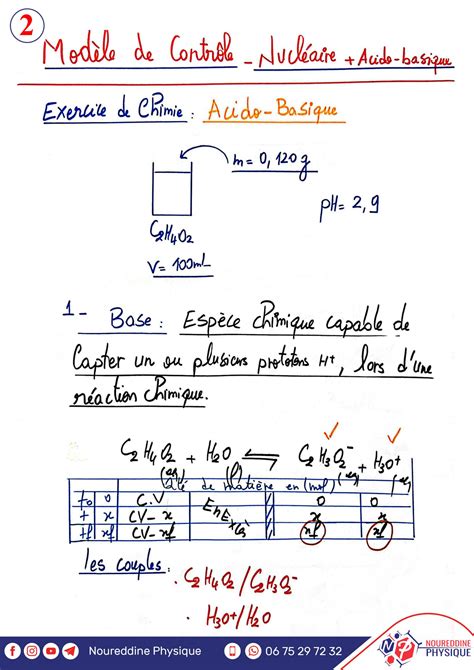 2
Modèle de Contrôle - Nucléaire + Acido-basique
Exercice de Chimie : Acido-Basique
m = 0,120g
pH = 2,9
C₂H₄O₂
V = 100mL
1 - Base : Espèce chimique capable de
Capter un ou plusieurs prototons H⁺, lors d'une
réaction chimique.
C₂H₄O₂ + H₂O ⇌ C₂H₃O₂⁻ + H₃O⁺
(aq) (l) (aq) (aq)
Qté de matière en (mol)
t₀ 0 C.V 0 0
t x CV-x En Excès x x
tf xf CV-xf xf xf
les couples :
. C₂H₄O₂/C₂H₃O₂⁻
. H₃O⁺/H₂O
Noureddine Physique 06 75 29 72 32 NOUREDDINE
PHYSIQUE